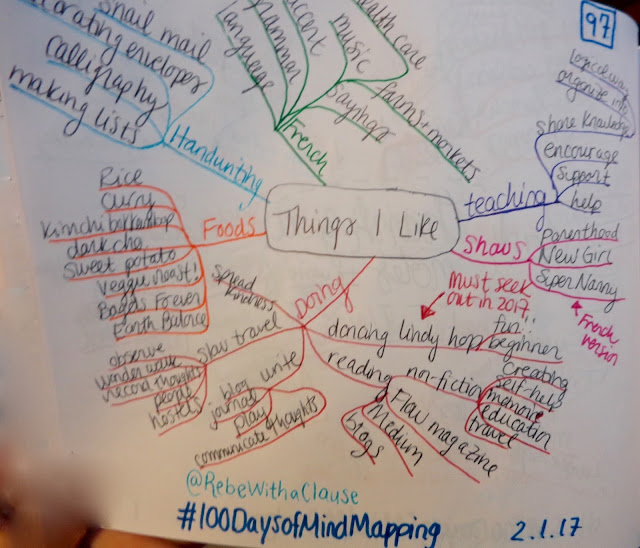 97
snail mail
orating envelopes
calligraphy
making lists
Handwriting
language
grammar
accent
music
ealth care
sayings
farms + markets
French
Things I Like
teaching
organize info
share knowledge
encourage
support
help
shows
Parenthood
New Girl
Super Nanny
French version
Foods
Rice
Curry
Kimchi bokkeumbap
dark cho
sweet potato
veggie roast!
Earth Balance
Doing
spread kindness
slow travel
observe
wonder walk
record thoughts
people
hostels
write
blog
journal
play
communicate thoughts
dancing lindy hop
fun!
beginner
must seek
out in 2017!
reading
non-fiction
creating
self-help
memoir
education
travel
Flow magazine
Medium
blogs
@RebeWithaClause
#100DaysofMindMapping
2.1.17